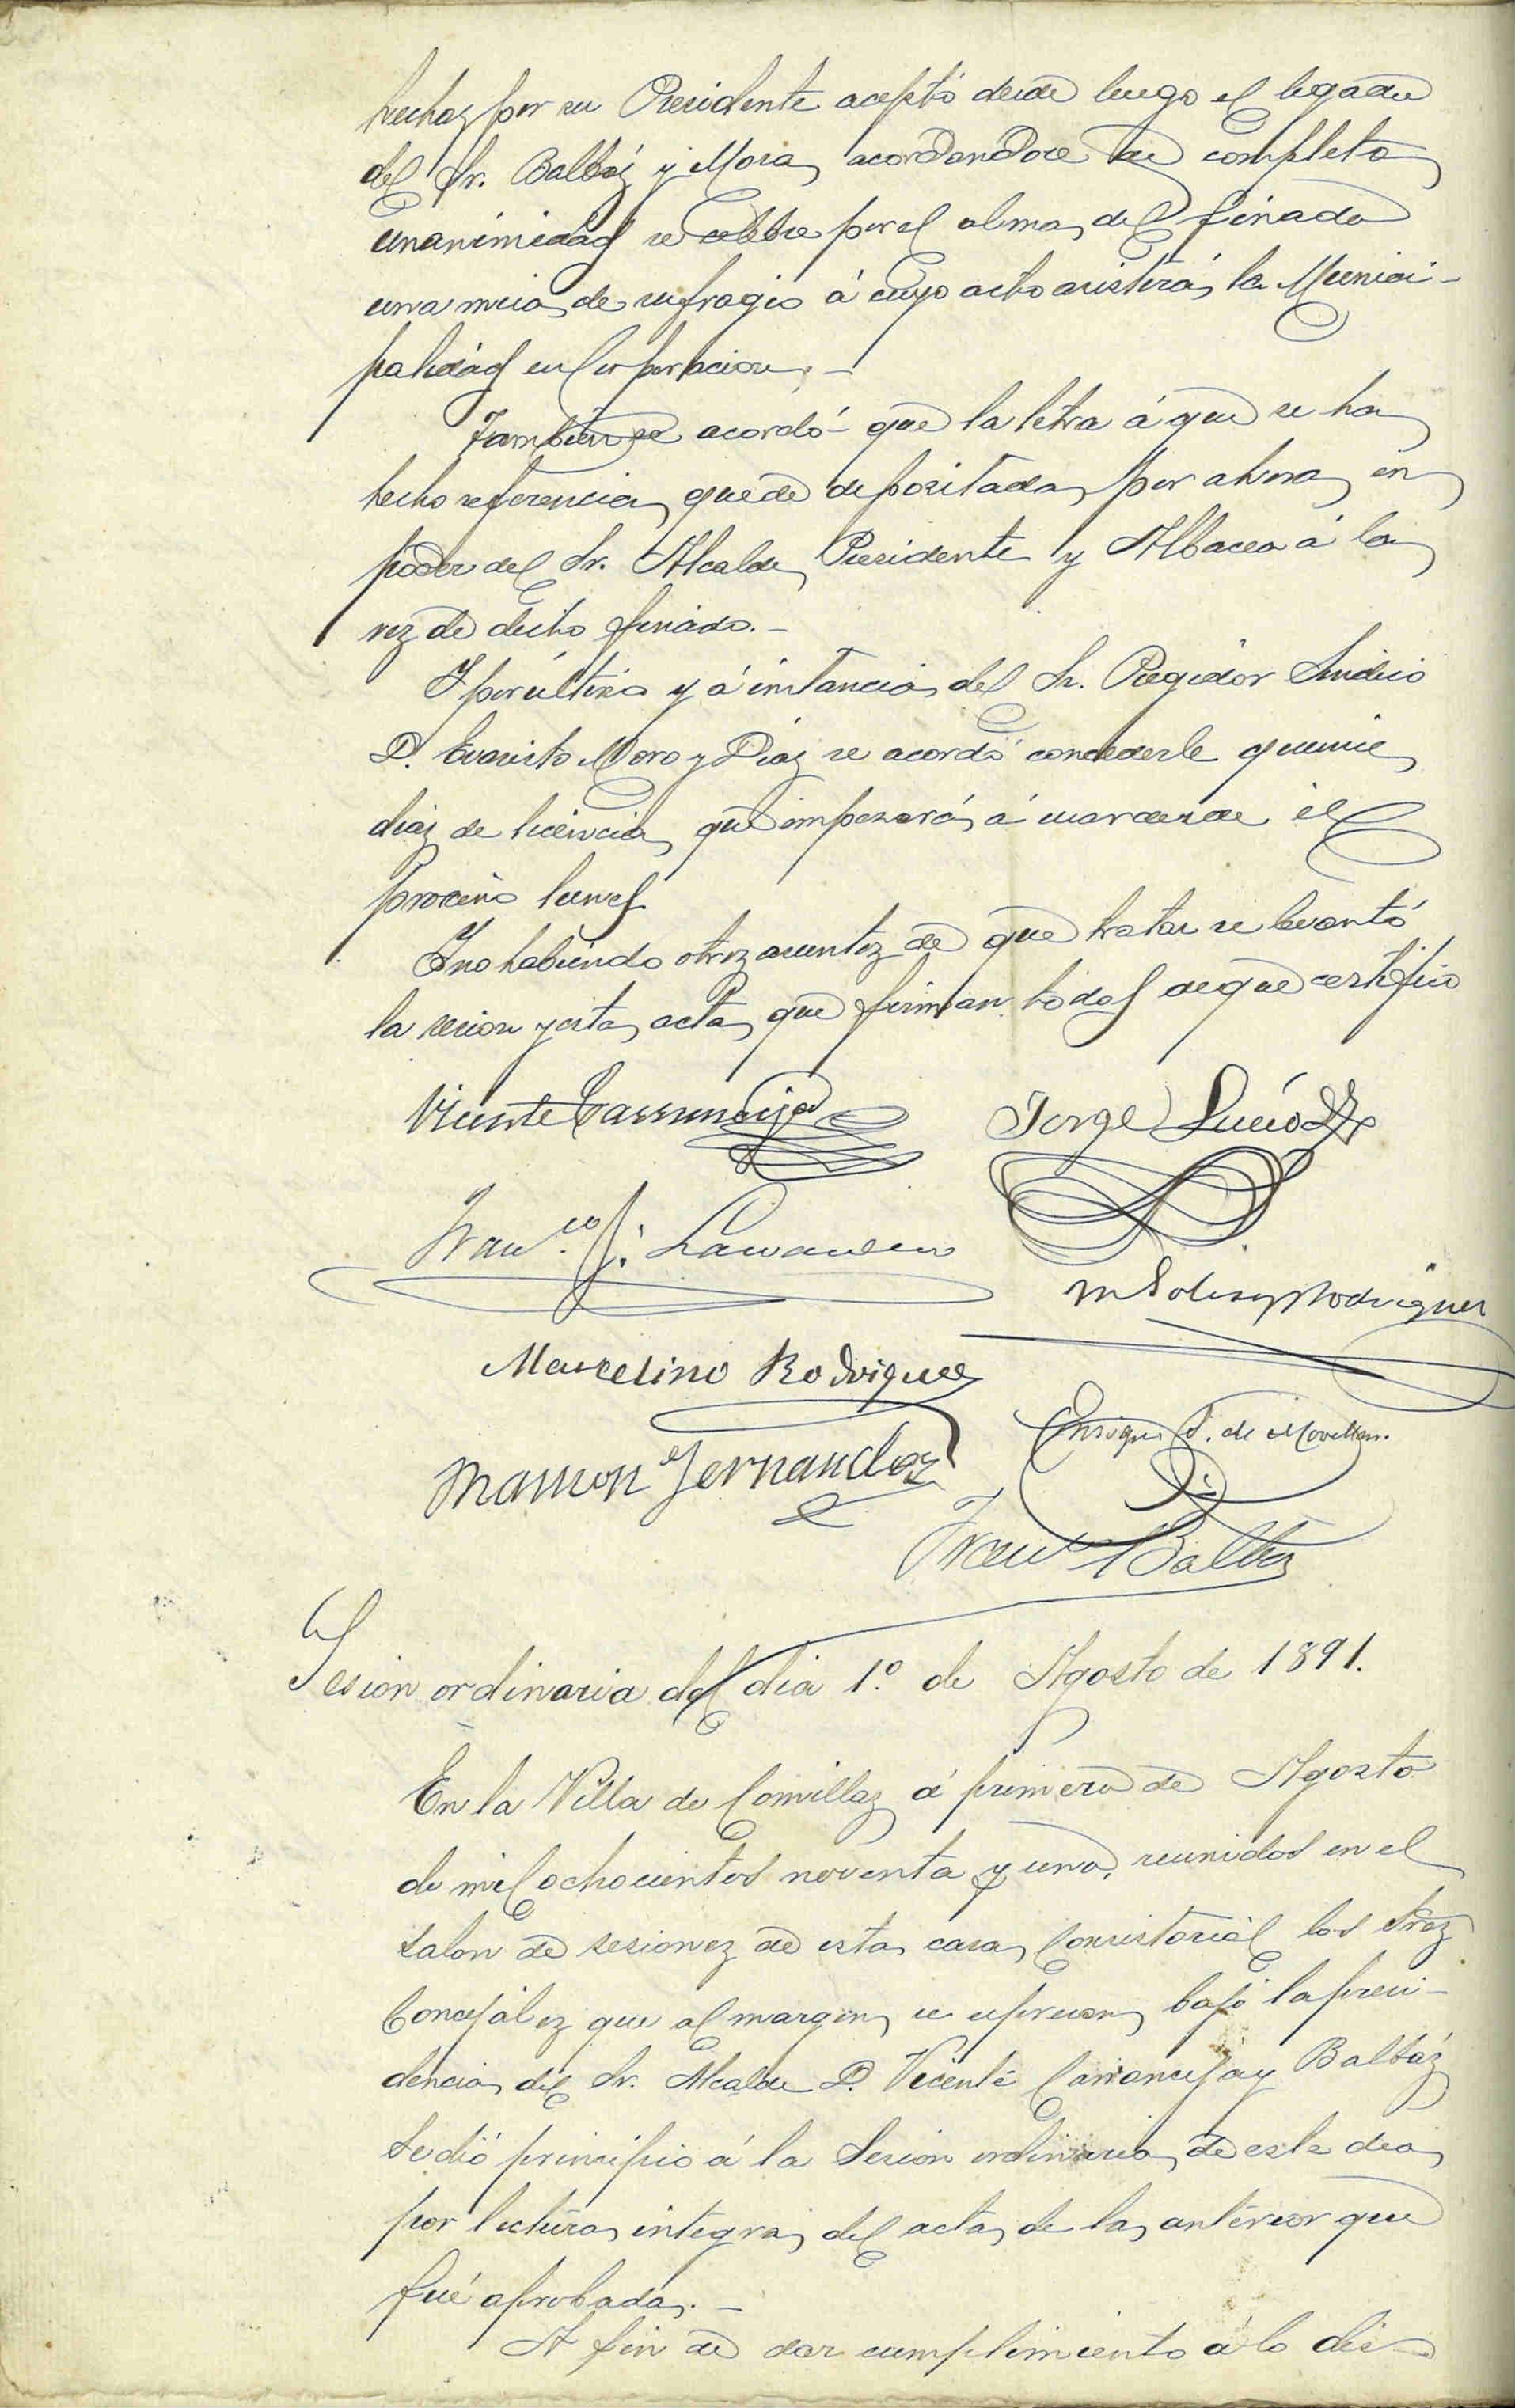 hechas por su Presidente aceptó desde luego el legado
del Sr. Balbás y Mora, acordandose de completa
unanimidad se celebre por el alma del finado
una misa de sufragio á cuyo acto asistirá la Munici-
palidad en Corporacion.-
Tambien se acordó que la letra á que se ha
hecho referencia quede depositada por ahora en
poder del Sr. Alcalde Presidente y Albacea á la
vez de dicho finado.-
Y por último y á instancia del Sr. Regidor Sindico
D. Evaristo Moro y Diaz se acordó concederle quince
dias de licencia que empezará á usar desde el
procsimo lunes.
Y no habiendo otros asuntos de que tratar se levantó
la sesion y esta acta que firman todos de que certifico
Vicente Carranceja
Jorge Lucio
Franco. J.
M Solis y Rodriguez
Marcelino Rodriguez
Ramon Fernandez
Enrique S. de Movellan.
Franco Balbas
Sesion ordinaria del dia 1º. de Agosto de 1891.
En la Villa de Comillas á primero de Agosto
de mil ochocientos noventa y uno, reunidos en el
salon de sesiones de esta casa Consistorial los Sres
Concejales que al margen se espresan bajo la presi-
dencia del Sr. Alcalde D. Vicente Carranceja y Balbás
se dió principio á la Sesion ordinaria de este dia
por lectura integra del acta de la anterior que
fué aprobada.-
A fin de dar cumplimiento á lo dis-